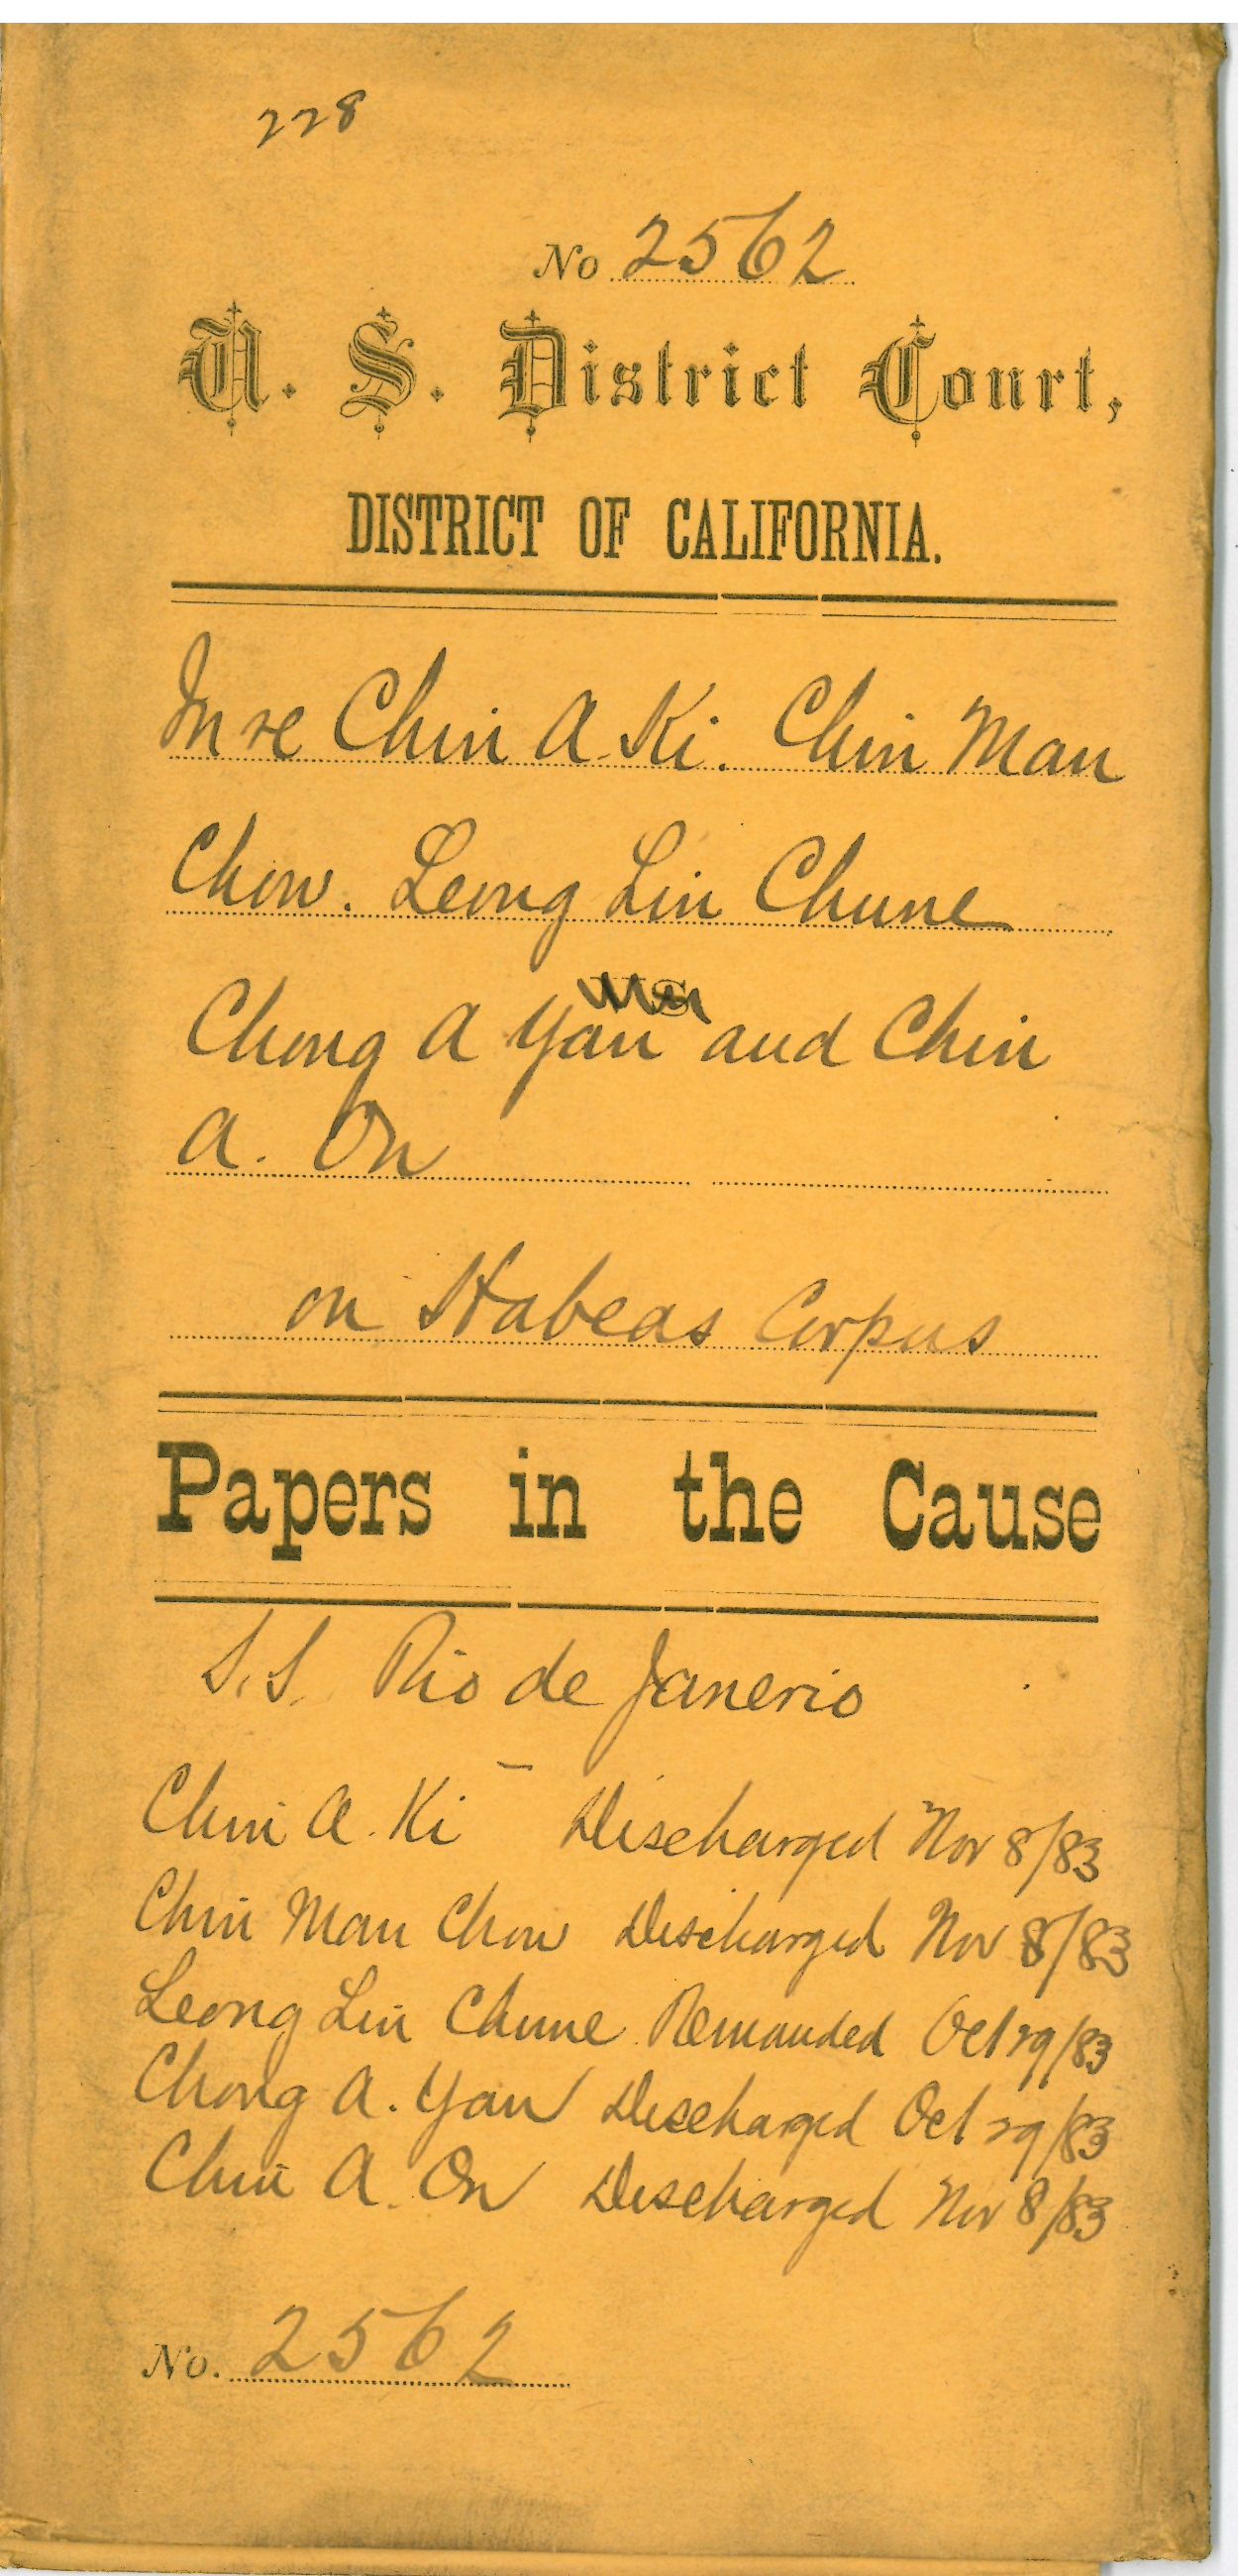 228
No 2562
U. S. District Court,
DISTRICT OF CALIFORNIA.
In re Chin A. Ki. Chin Man
Chow. Leong Lin Chune
Chong A Yan and Chin
A. On
on Habeas Corpus
Papers in the Cause
S.S. Rio de Janerio
Chin A. Ki – Discharged Nov 8/83
Chin Man Chow Discharged Nov 8/83
Leong Lin Chune Remanded Oct 29/83
Chong A. Yan Discharged Oct 29/83
Chin A. On Discharged Nov 8/83
No. 2562